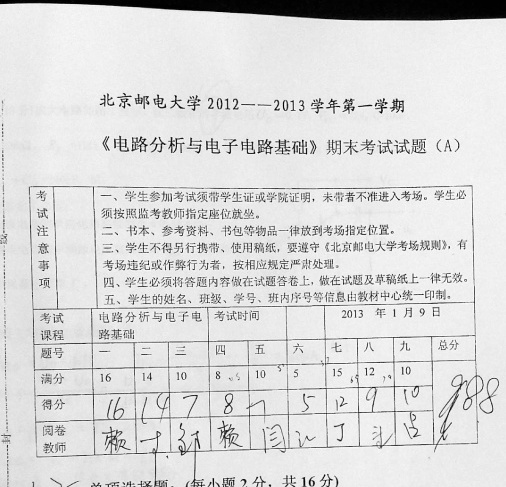 北京邮电大学 2012——2013 学年第一学期
《电路分析与电子电路基础》期末考试试题（A）
考试注意事项
一、学生参加考试须带学生证或学院证明，未带者不准进入考场。学生必
须按照监考教师指定座位就坐。
二、书本、参考资料、书包等物品一律放到考场指定位置。
三、学生不得另行携带、使用稿纸，要遵守《北京邮电大学考场规则》，有
考场违纪或作弊行为者，按相应规定严肃处理。
四、学生必须将答题内容做在试题答卷上，做在试题及草稿纸上一律无效。
五、学生的姓名、班级、学号、班内序号等信息由教材中心统一印制。
考试课程 电路分析与电子电路基础 考试时间 2013 年 1 月 9 日
题号 一 二 三 四 五 六 七 八 九 总分
满分 16 14 10 8 10 5 15 12 10
得分 16 14 7 8 7 5 12 9 10 88
阅卷教师 赖 赖 闫 丁
单项选择题：(每小题 2 分，共 16 分)